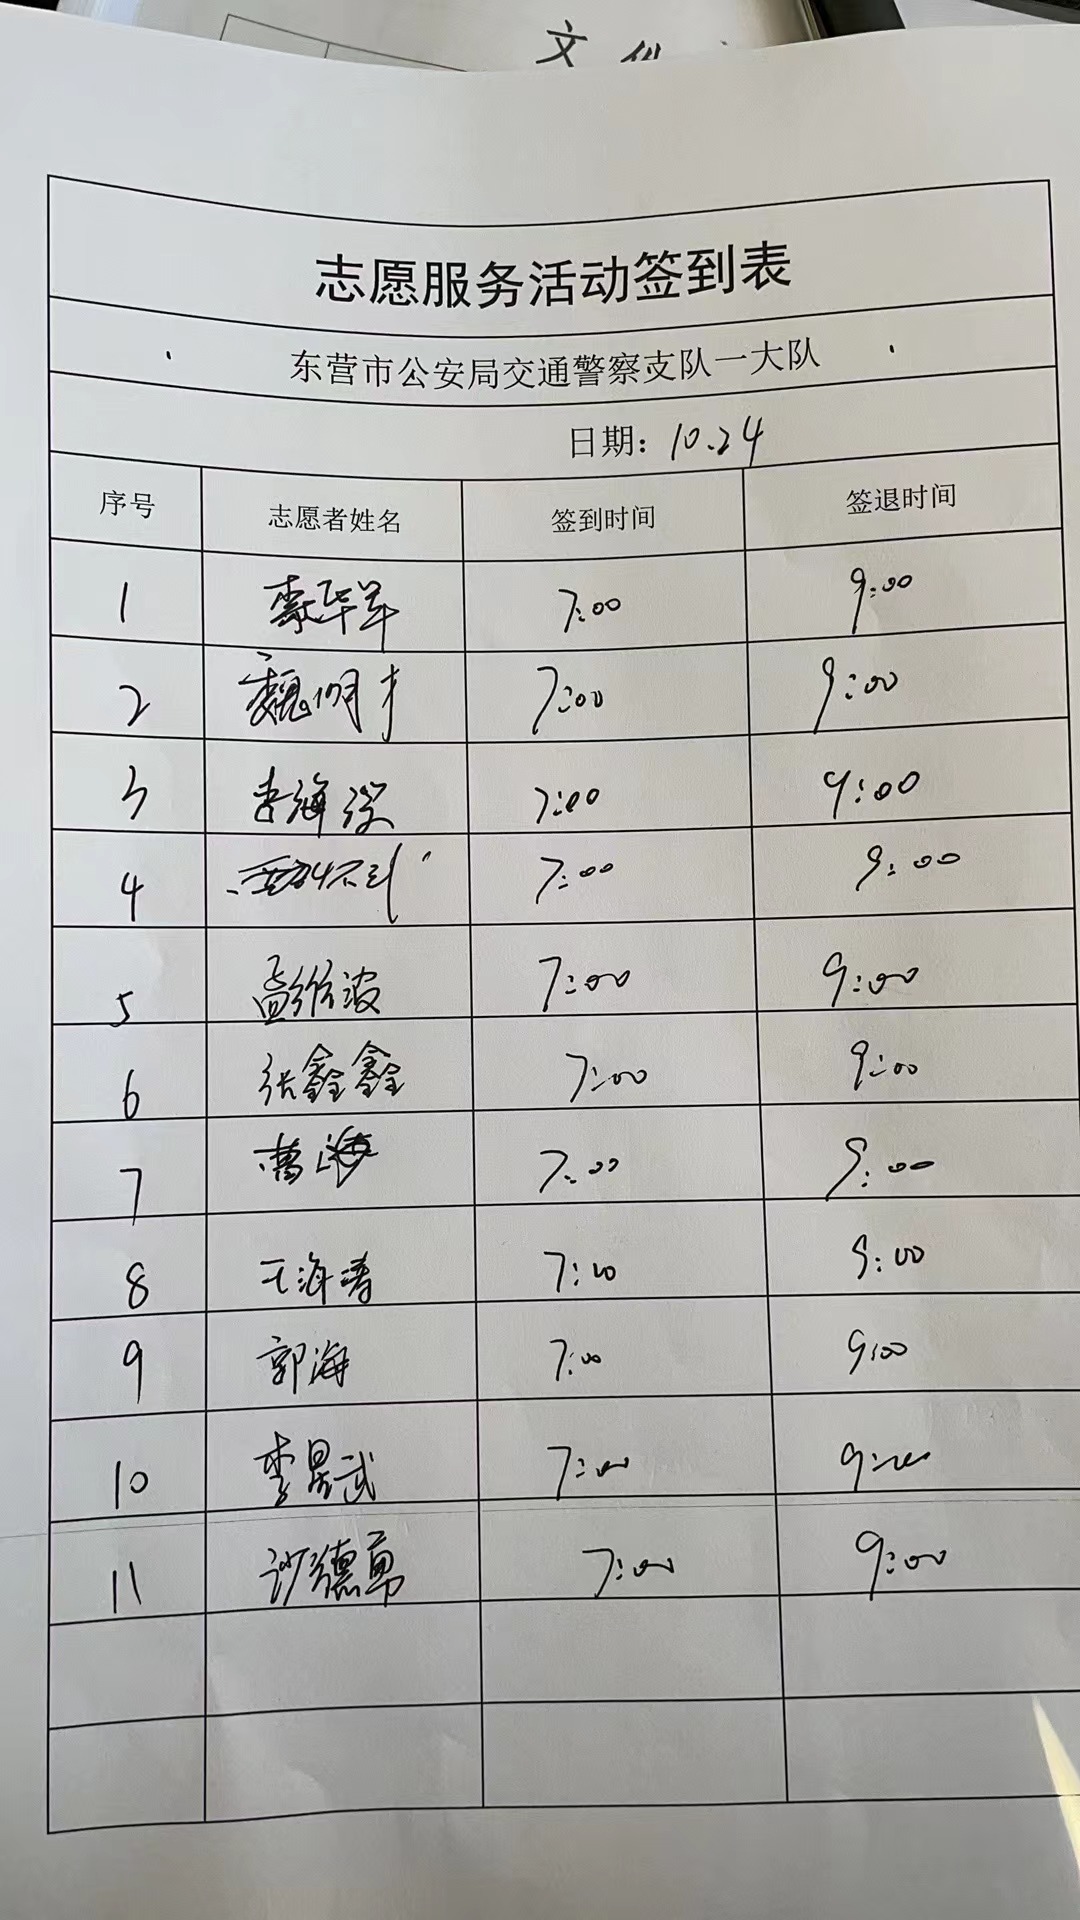 文件
志愿服务活动签到表
东营市公安局交通警察支队一大队
日期: 10.24
序号 志愿者姓名 签到时间 签退时间
1 7:00 9:00
2 魏明才 7:00 9:00
3 李海滨 7:00 9:00
4 7:00 9:00
5 孟维波 7:00 9:00
6 张鑫鑫 7:00 9:00
7 曹海 7:00 9:00
8 王海涛 7:00 9:00
9 郭海 7:00 9:00
10 李昊武 7:00 9:00
11 沙德勇 7:00 9:00